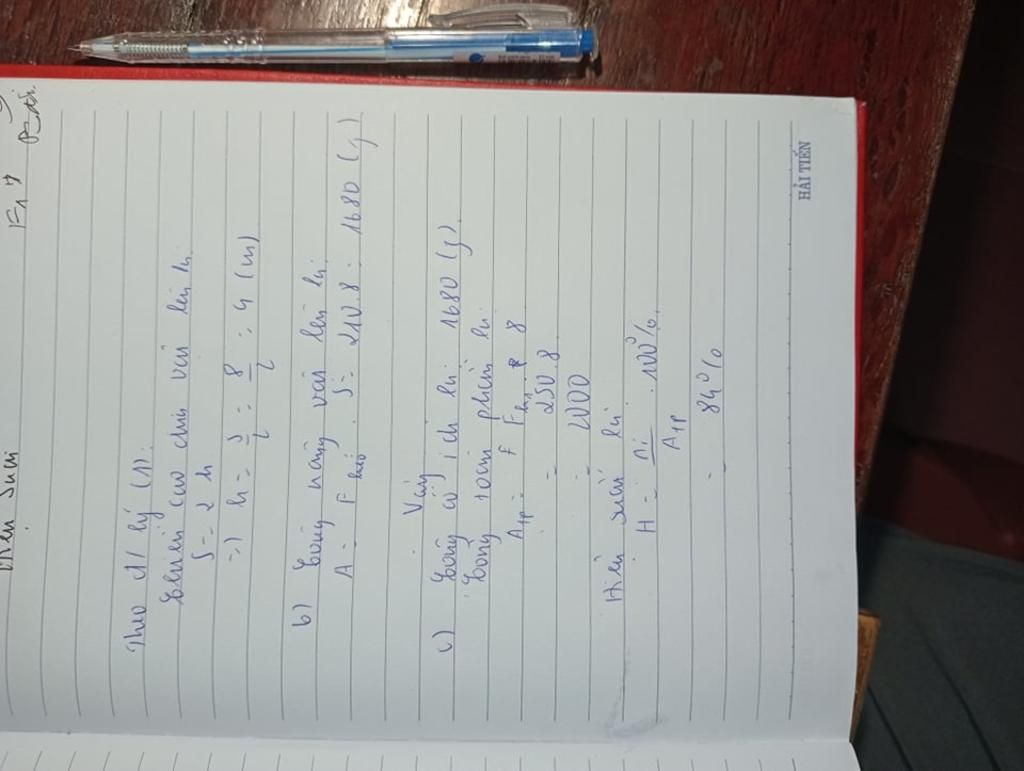 Hiệu suất
F1 7
Theo đl lý (1).
Chiều cao đưa vật lên là.
S = 2 h
=) h = S/2 = 8/2 = 4 (m)
b) Công nâng vật lên là:
A = F kéo . S = 210.8 = 1680 (J)
Vậy
c) Công có ích là 1680 (J)
Công toàn phần là
Atp = F . 8
= 250.8
= 2000
Hiệu suất là
H = Ai / Atp . 100%.
= 84%
HẢI TIẾN